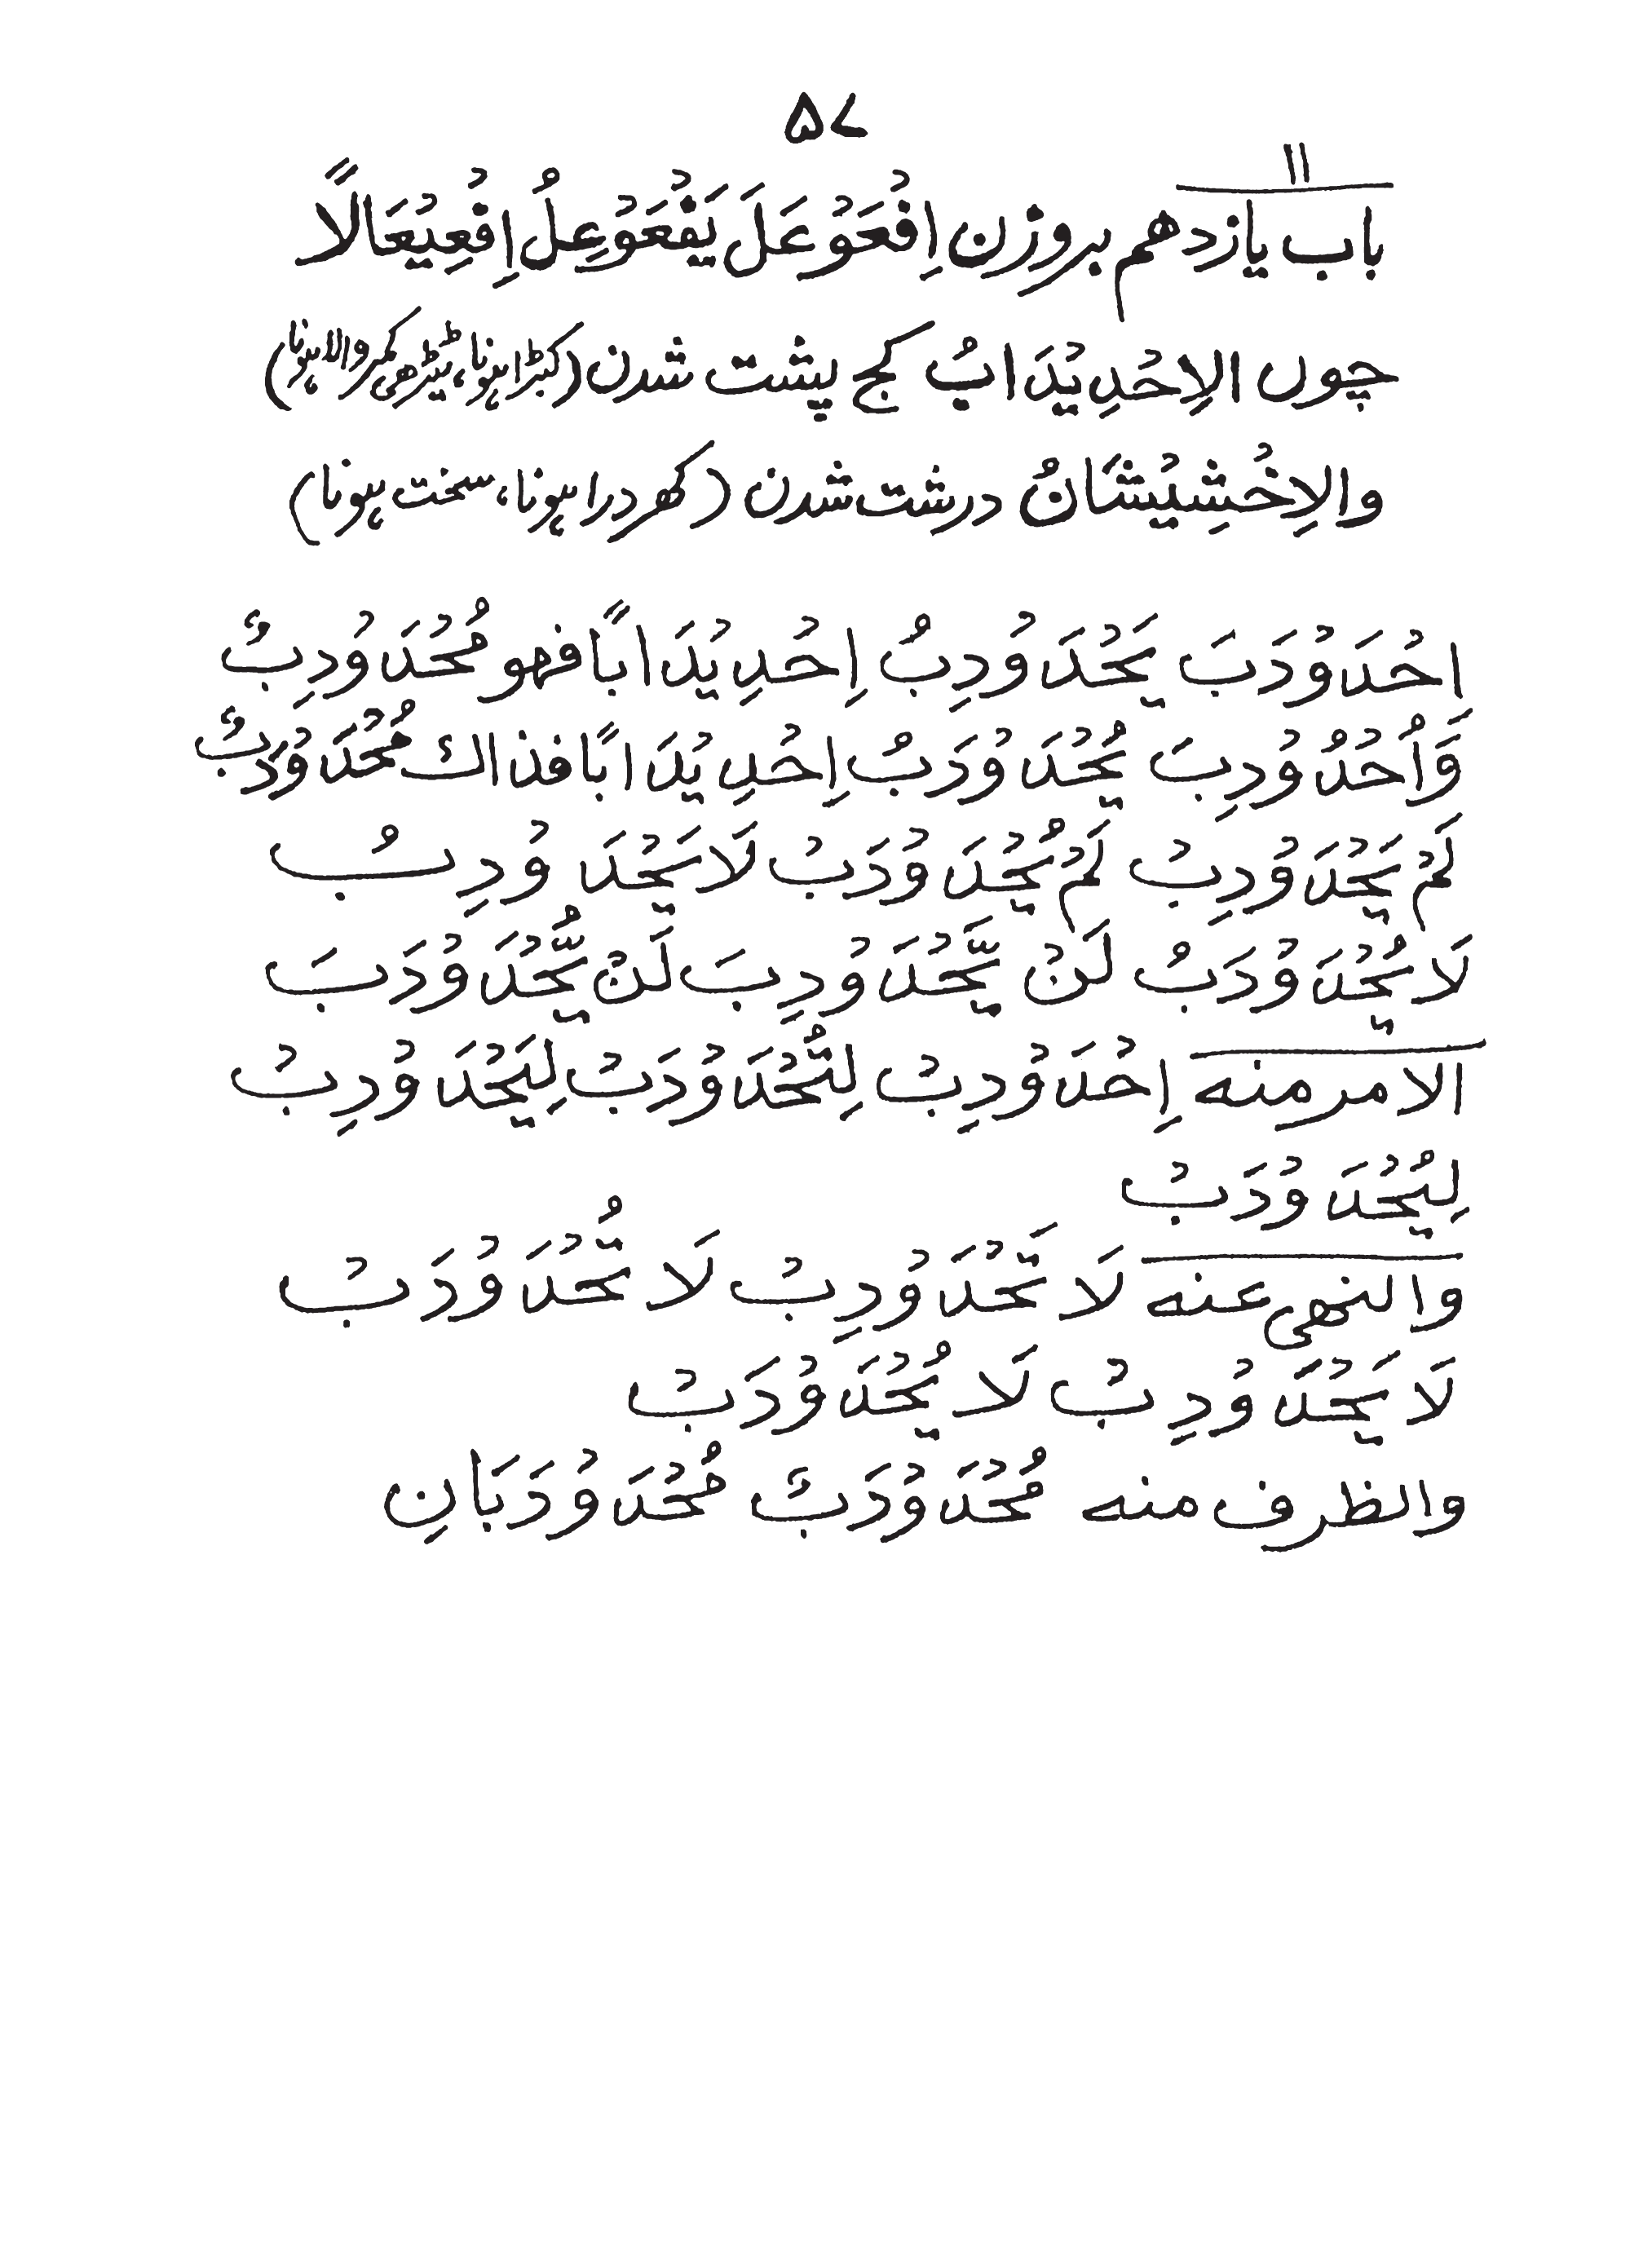 ۵۷
۱۱
باب یازدهم بروزن اِفْعَوْعَلَ یَفْعَوْعِلُ اِفْعِیْعَالًا
چوں الاِحْدِیْدَابُ کج پشت شدن (کبڑا ہونا، ٹیڑھی کمر والا ہونا)
والاِخْشِیْشَانُ درشت شدن (کھردرا ہونا، سخت ہونا)
احْدَوْدَبَ یَحْدَوْدِبُ اِحْدِیْدَابًا فهو مُحْدَوْدِبٌ
وَاُحْدُوْدِبَ یُحْدَوْدَبُ اِحْدِیْدَابًا فذاك مُحْدَوْدَبٌ
لَمْ یَحْدَوْدِبْ لَمْ یُحْدَوْدَبْ لَا یَحْدَوْدِبُ
لَا یُحْدَوْدَبُ لَنْ یَّحْدَوْدِبَ لَنْ یُّحْدَوْدَبَ
الامر منه اِحْدَوْدِبْ لِتُحْدَوْدَبْ لِیَحْدَوْدِبْ
لِیُحْدَوْدَبْ
والنهی عنه لَا تَحْدَوْدِبْ لَا تُحْدَوْدَبْ
لَا یَحْدَوْدِبْ لَا یُحْدَوْدَبْ
والظرف منه مُحْدَوْدَبٌ مُحْدَوْدَبَانِ